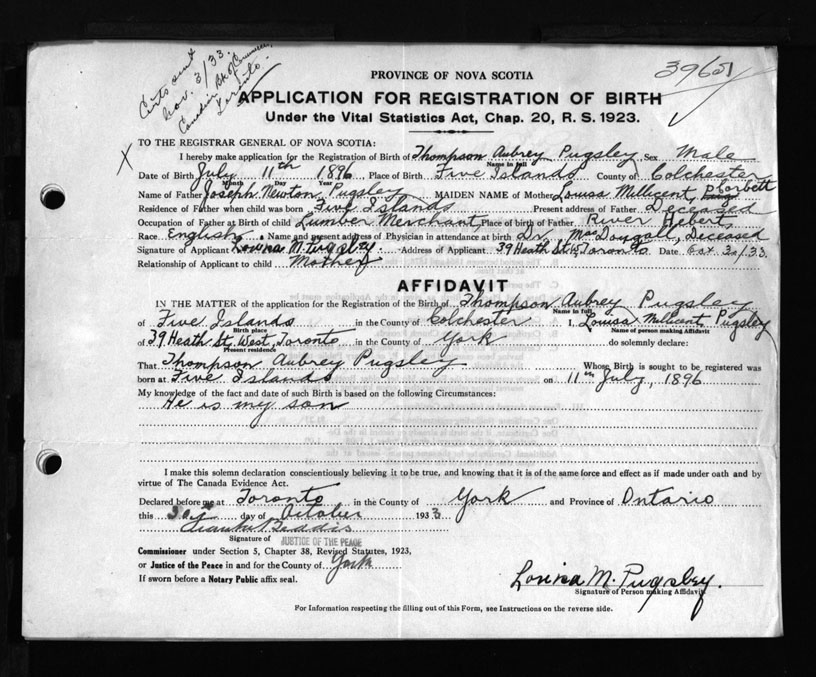 Certs sent
Nov. 3/33.
Canadian Bk of Commerce,
Toronto.
39651
PROVINCE OF NOVA SCOTIA
APPLICATION FOR REGISTRATION OF BIRTH
Under the Vital Statistics Act, Chap. 20, R. S. 1923.
X
TO THE REGISTRAR GENERAL OF NOVA SCOTIA:
I hereby make application for the Registration of Birth of Thompson Aubrey Pugsley Sex Male
Name in full
Date of Birth July 11th 1896 Place of Birth Five Islands County of Colchester
Month Day Year
Name of Father Joseph Newton Pugsley MAIDEN NAME of Mother Louisa Millicent, Corbett
Residence of Father when child was born Five Islands Present address of Father Deceased
Occupation of Father at Birth of child Lumber Merchant Place of birth of Father River Hebert,
Race English Name and present address of Physician in attendance at birth Dr. MacDougall, Deceased
Signature of Applicant Louisa M. Pugsley Address of Applicant 39 Heath St. W. Toronto Date Oct 30/33.
Relationship of Applicant to child Mother
AFFIDAVIT
IN THE MATTER of the application for the Registration of the Birth of Thompson Aubrey Pugsley
Name in full
of Five Islands in the County of Colchester I, Louisa Millicent Pugsley
Birth place Name of person making Affidavit
of 39 Heath St, West, Toronto in the County of York do solemnly declare:
Present residence
That Thompson Aubrey Pugsley Whose Birth is sought to be registered was
born at Five Islands on 11th July, 1896
My knowledge of the fact and date of such Birth is based on the following Circumstances:
He is my son
I make this solemn declaration conscientiously believing it to be true, and knowing that it is of the same force and effect as if made under oath and by
virtue of The Canada Evidence Act.
Declared before me at Toronto in the County of York and Province of Ontario
this 30th day of October 1933
Signature of JUSTICE OF THE PEACE
Commissioner under Section 5, Chapter 38, Revised Statutes, 1923,
or Justice of the Peace in and for the County of York
If sworn before a Notary Public affix seal.
Louisa M. Pugsley.
Signature of Person making Affidavit.
For Information respecting the filling out of this Form, see Instructions on the reverse side.